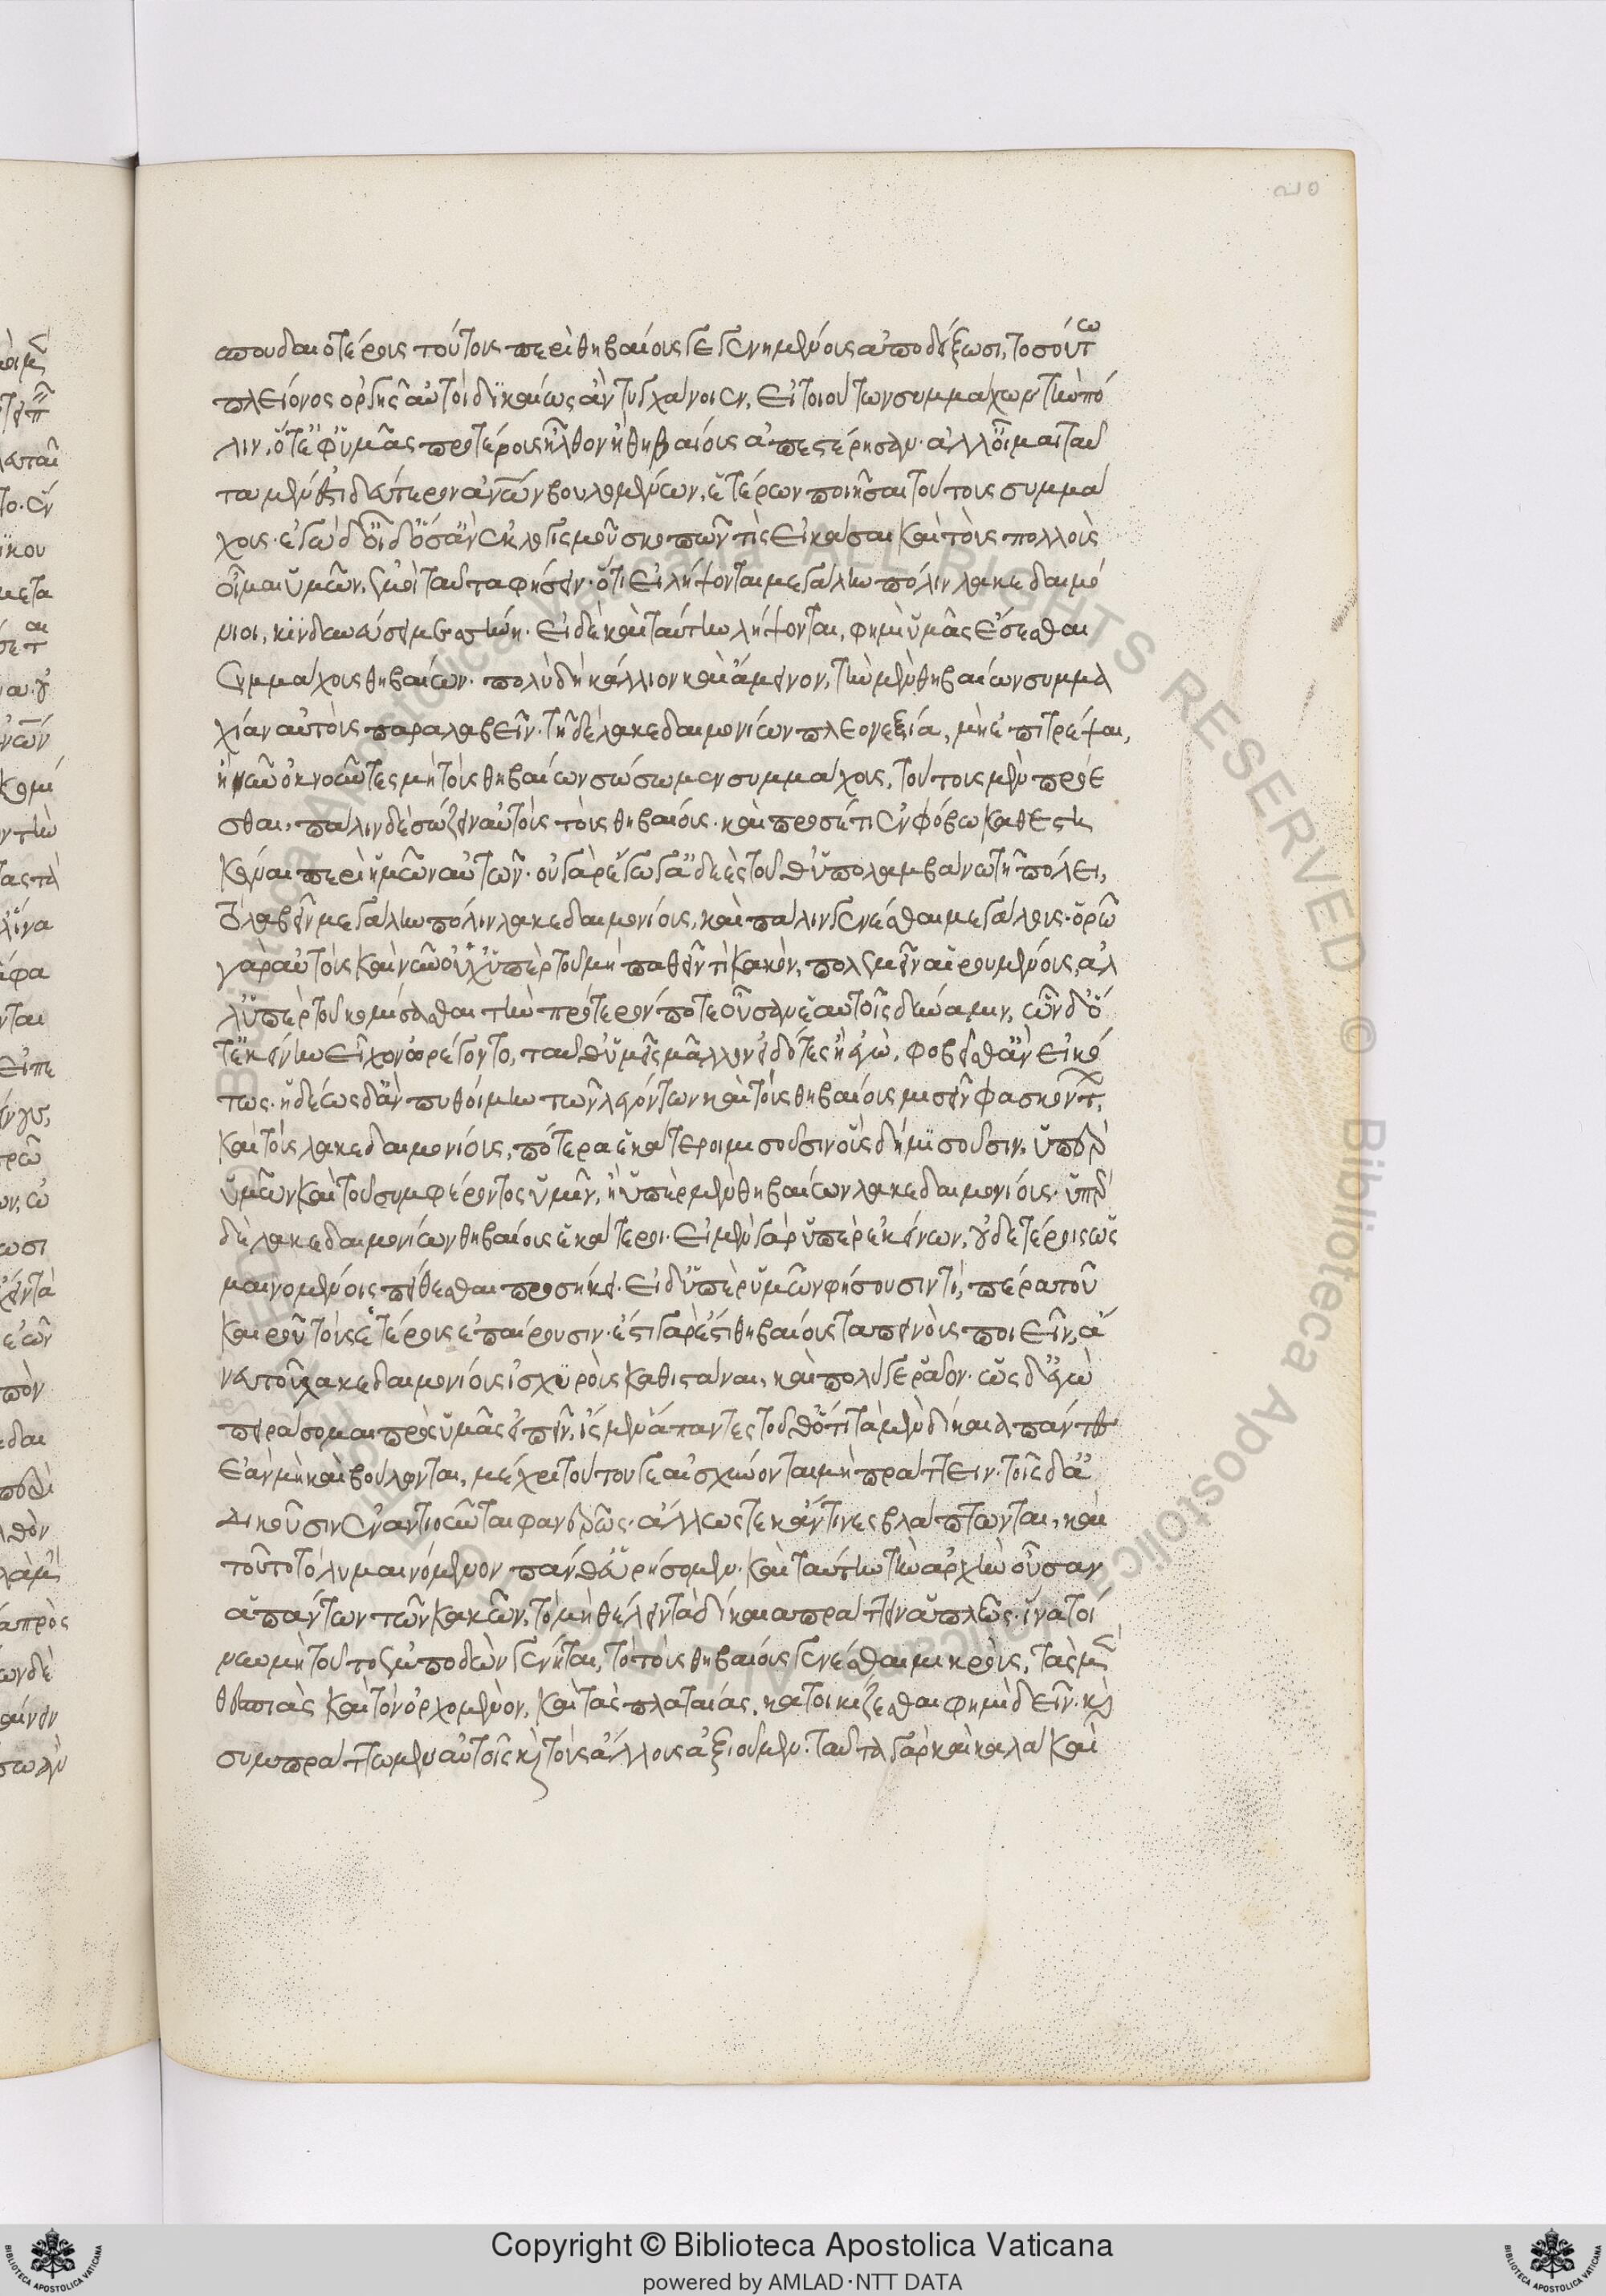 σπουδαιοτέρους τούτους περὶ θηβαίους γεγενημένους ἀποδείξωσι, τοσούτω
πλείονος ὀργῆς αὐτοὶ δικαίως ἂν τυγχάνοιεν, εἰ τοιούτων συμμάχων τὴν πό
λιν, ὅτε ἐφ' ὑμᾶς προτέρους ἦλθον ἢ θηβαίους ἀπεστέρησαν. ἀλλ' οἶμαι ταῦ
τα μὲν ἐστὶ δεύτερον ἀνθρώπων βουλομένων, ἑτέρων ποιῆσαι τούτους συμμά
χους. ἐγὼ δ' οἶδ' ὅσ' ἂν ἐκ λογισμοῦ σκοπῶν τὶς εἰκάσαι καὶ τοὺς πολλοὺς
οἶμαι ὑμῶν ἐμοὶ ταῦτα φήσειν. ὅτι εἰ λήψονται μεγάλην πόλιν λακεδαιμό
νιοι, κινδυνεύσει μεσσήνη. εἰ δὲ καὶ ταύτην λήψονται, φημὶ ὑμᾶς ἔσεσθαι
συμμάχους θηβαίων. πολὺ δὴ κάλλιον καὶ ἄμεινον, τὴν μὲν θηβαίων συμμα
χίαν αὐτοὺς παραλαβεῖν. τῇ δὲ λακεδαιμονίων πλεονεξία, μὴ ἐπιτρέψαι,
ἢ νῦν ὀκνοῦντες μὴ τοὺς θηβαίων σώσωμεν συμμάχους, τούτους μὲν προέ
σθαι, πάλιν δὲ σώζειν αὐτοὺς τοὺς θηβαίους. καὶ προσέτι ἐν φόβω καθεστη
κέναι περὶ ἡμῶν αὐτῶν. οὐ γὰρ ἔγωγ' ἀδεὲς τοῦθ' ὑπολαμβάνω τῇ πόλει,
τὸ λαβεῖν μεγάλην πόλιν λακεδαιμονίους, καὶ πάλιν γενέσθαι μεγάλους. ὁρῶ
γὰρ αὐτοὺς καὶ νῦν οὐχ ὑπὲρ τοῦ μὴ παθεῖν τὶ κακὸν, πολεμεῖν αἱρουμένους, ἀλ
λ' ὑπὲρ τοῦ κομίσασθαι τὴν πρότερόν ποτε οὖσαν ἑαυτοῖς δύναμιν, ὧν δ' ὅ
τ' ἐκείνην εἶχον ὠρέγοντο, ταῦθ' ὑμεῖς μᾶλλον εἰδότες ἢ 'γὼ, φοβεῖσθ' ἂν εἰκό
τως. ἡδέως δ' ἂν πυθοίμην τῶν λεγόντων καὶ τοὺς θηβαίους μισεῖν φασκόντων
καὶ τοὺς λακεδαιμονίους, πότερα ἑκάτεροι μισοῦσιν οὓς δὴ μισοῦσιν, ὑπὲρ
ὑμῶν καὶ τοῦ συμφέροντος ὑμῖν, ἢ ὑπὲρ μὲν θηβαίων λακεδαιμονίους. ὑπὲρ
δὲ λακεδαιμονίων θηβαίους ἑκάτεροι. εἰ μὲν γὰρ ὑπὲρ ἐκείνων, οὐδετέροις ὡς
μαινομένοις πείθεσθαι προσήκει. εἰ δ' ὑπὲρ ὑμῶν φήσουσιν τί, πέρα τοῦ
καιροῦ τοὺς ἑτέρους ἐπαίρουσιν. ἔστι γὰρ ἔστι θηβαίους ταπεινοὺς ποιεῖν, ἄ
νευ τοῦ λακεδαιμονίους ἰσχυροὺς καθιστάναι, καὶ πολύ γε ῥᾷον. ὡς δ' ἐγὼ
πειράσομαι πρὸς ὑμᾶς εἰπεῖν, ἴσμεν ἅπαντες τοῦθ' ὅτι τὰ μὲν δίκαια πάντες
ἐὰν μὴ καὶ βούλωνται, μέχρι τούτου γε αἰσχύνονται μὴ πράττειν. τοῖς δ' ἀ
δικοῦσιν ἐναντιοῦνται φανερῶς. ἄλλως τε κἄν τινες βλάπτωνται, καὶ
τοῦτο τὸ λυμαινόμενον πάνθ' εὑρήσομεν. καὶ ταύτην τὴν ἀρχὴν οὖσαν
ἁπάντων τῶν κακῶν, τὸ μὴ θέλειν τὰ δίκαια πράττειν ἁπλῶς. ἵνα τοί
νυν μὴ τοῦτο ἐμποδὼν γένηται, τὸ τοὺς θηβαίους γενέσθαι μικροὺς, τὰς μὲν
θεσπιὰς καὶ τὸν ὀρχομενὸν, καὶ τὰς πλαταιάς, κατοικίζεσθαι φημὶ δεῖν. καὶ
συμπράττωμεν αὐτοῖς καὶ τοὺς ἄλλους ἀξιοῦμεν. ταῦτα γὰρ καὶ καλὰ καὶ
Copyright © Biblioteca Apostolica Vaticana
powered by AMLAD·NTT DATA